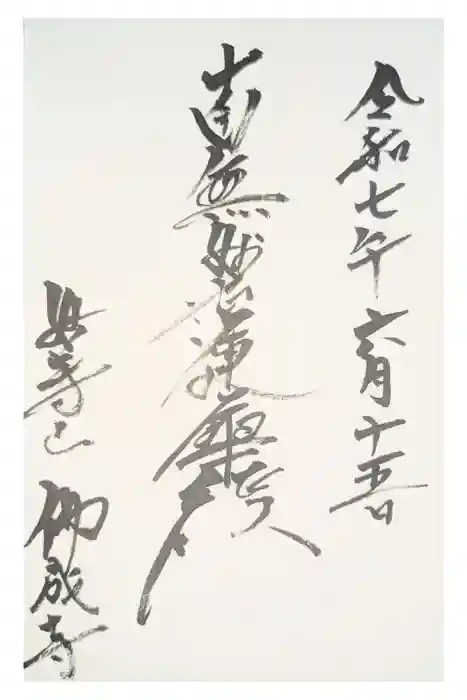 令和七年六月十五日
南無妙法蓮華経
山 佛成寺